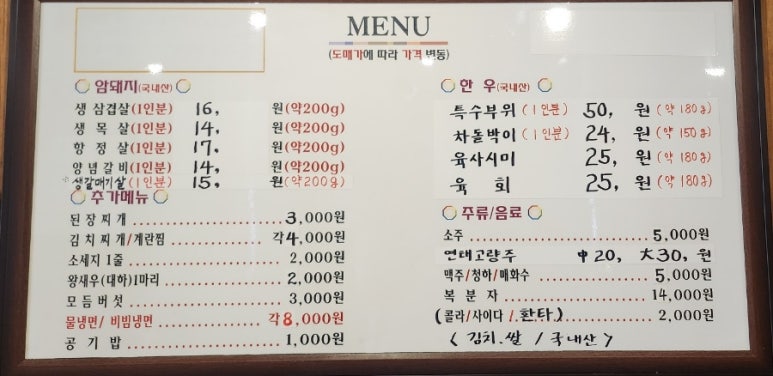 MENU
(도매가에 따라 가격 변동)
암돼지(국내산)
생 삼겹살(1인분) 16, 원(약200g)
생 목 살(1인분) 14, 원(약200g)
항 정 살(1인분) 17, 원(약200g)
양념갈비(1인분) 14, 원(약200g)
생갈매기살(1인분) 15, 원(약200g)
추가메뉴
된장찌개 3,000원
김치찌개/계란찜 각4,000원
소세지 1줄 2,000원
왕새우(대하)1마리 2,000원
모듬버섯 3,000원
물냉면/ 비빔냉면 각8,000원
공 기 밥 1,000원
한 우(국내산)
특수부위 (1인분) 50, 원 (약 180g)
차돌박이 (1인분) 24, 원 (약 150g)
육사시미 25, 원 (약 180g)
육 회 25, 원 (약 180g)
주류/음료
소주 5,000원
연태고량주 中20, 大30, 원
맥주/청하/매화수 5,000원
복 분 자 14,000원
(콜라/사이다 /.환타.) 2,000원
< 김치.쌀 / 국내산 >